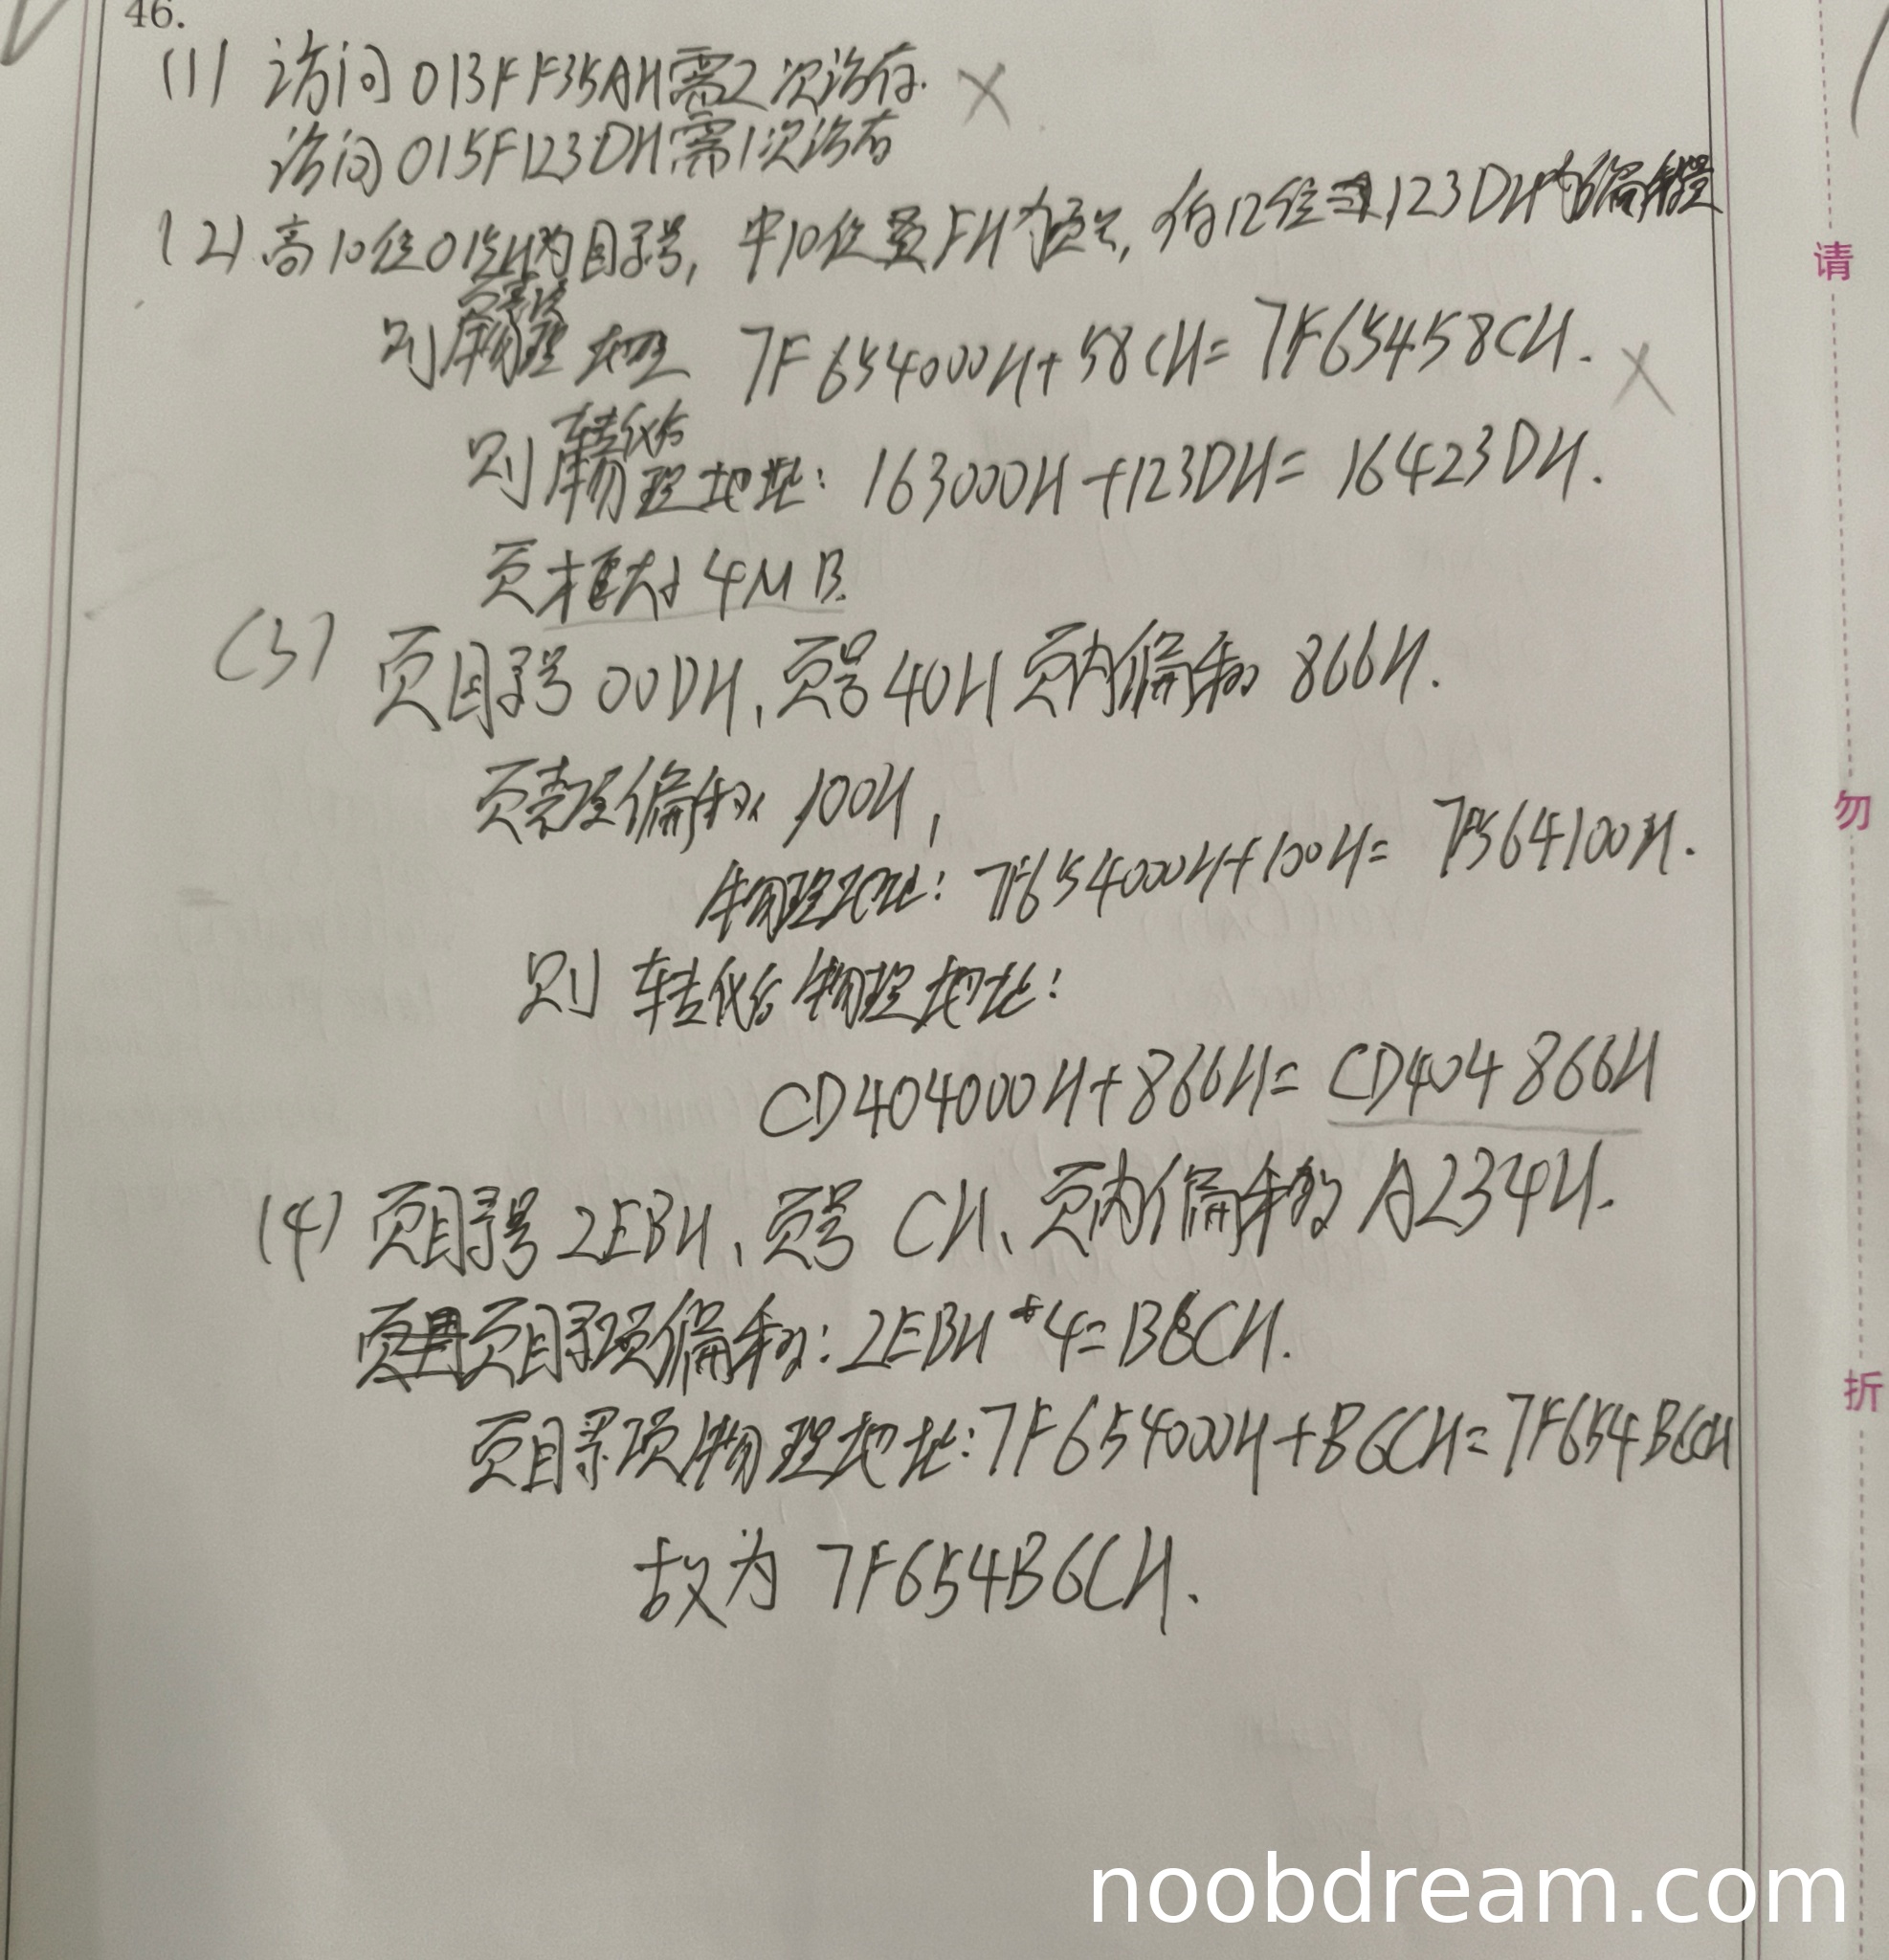 46.
(1) 访问013FF35AH需2次访存. ×
访问015F123DH需1次访存
(2) 高10位015H为目录号, 中10位 FH为页号, 低12位 123DH为偏移量
则 物理地址 7F654000H+58CH=7F65458CH. ×
则转化后物理地址: 163000H+123DH=16423DH.
页框大小4MB.
(3) 页目录号00DH, 页号40H 页内偏移为 866H.
页表项偏移为 100H,
物理地址: 7F654000H+100H= 7F564100H.
则 转化后物理地址:
CD404000H+866H= CD404866H
(4) 页目录号 2EBH, 页号 CH, 页内偏移为 A234H.
页目录项偏移为: 2EBH*4=B6CH.
页目录项物理地址: 7F654000H+B6CH=7F654B6CH
故为 7F654B6CH.
请
勿
折
noobdream.com